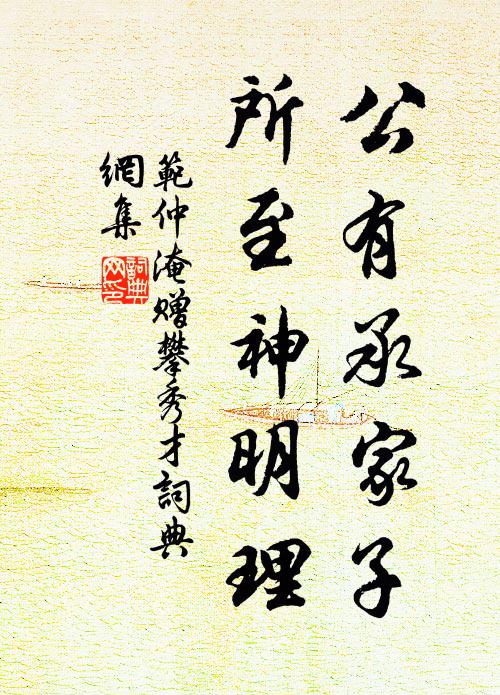 公有承家子
所至神明理
範仲淹贈攀秀才詞典
網集
詞典
网印